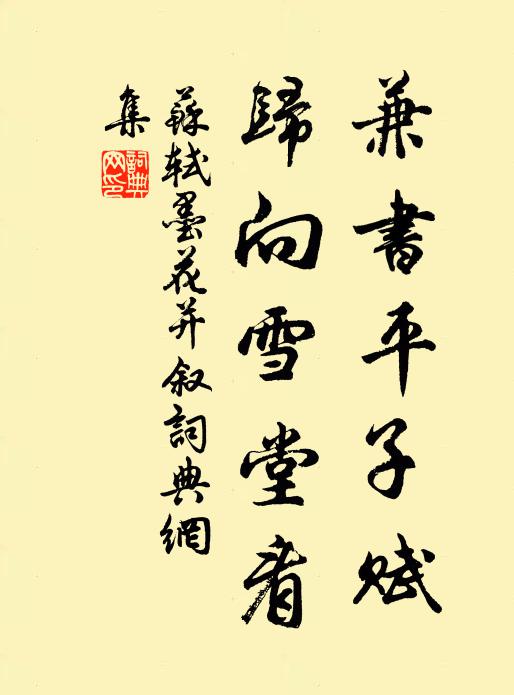 兼書平子賦
歸向雪堂看
蘇軾墨花并叙詞典網
集
詞典網印